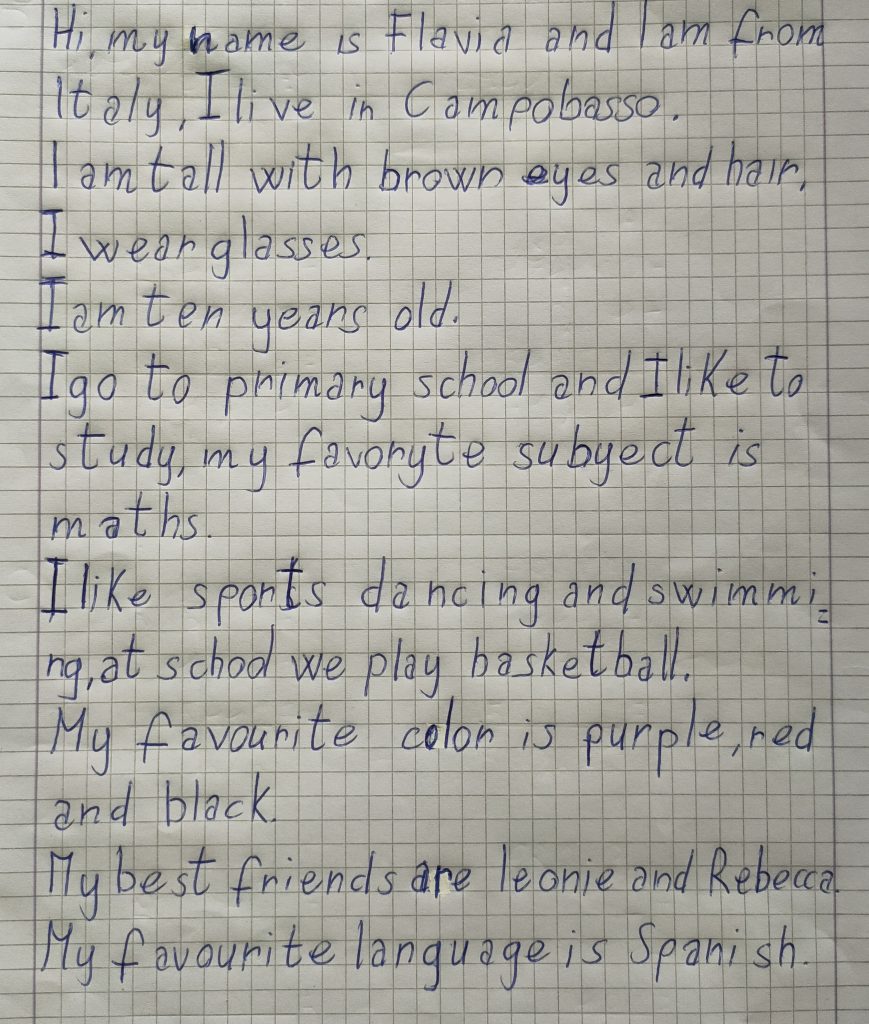 Hi, my name is Flavia and I am from
Italy, I live in Campobasso.
I am tall with brown eyes and hair,
I wear glasses.
I am ten years old.
I go to primary school and I like to
study, my favoryte subyect is
maths.
I like sports dancing and swimmi=
ng, at school we play basketball.
My favourite color is purple, red
and black.
My best friends are leonie and Rebecca.
My favourite language is Spanish.